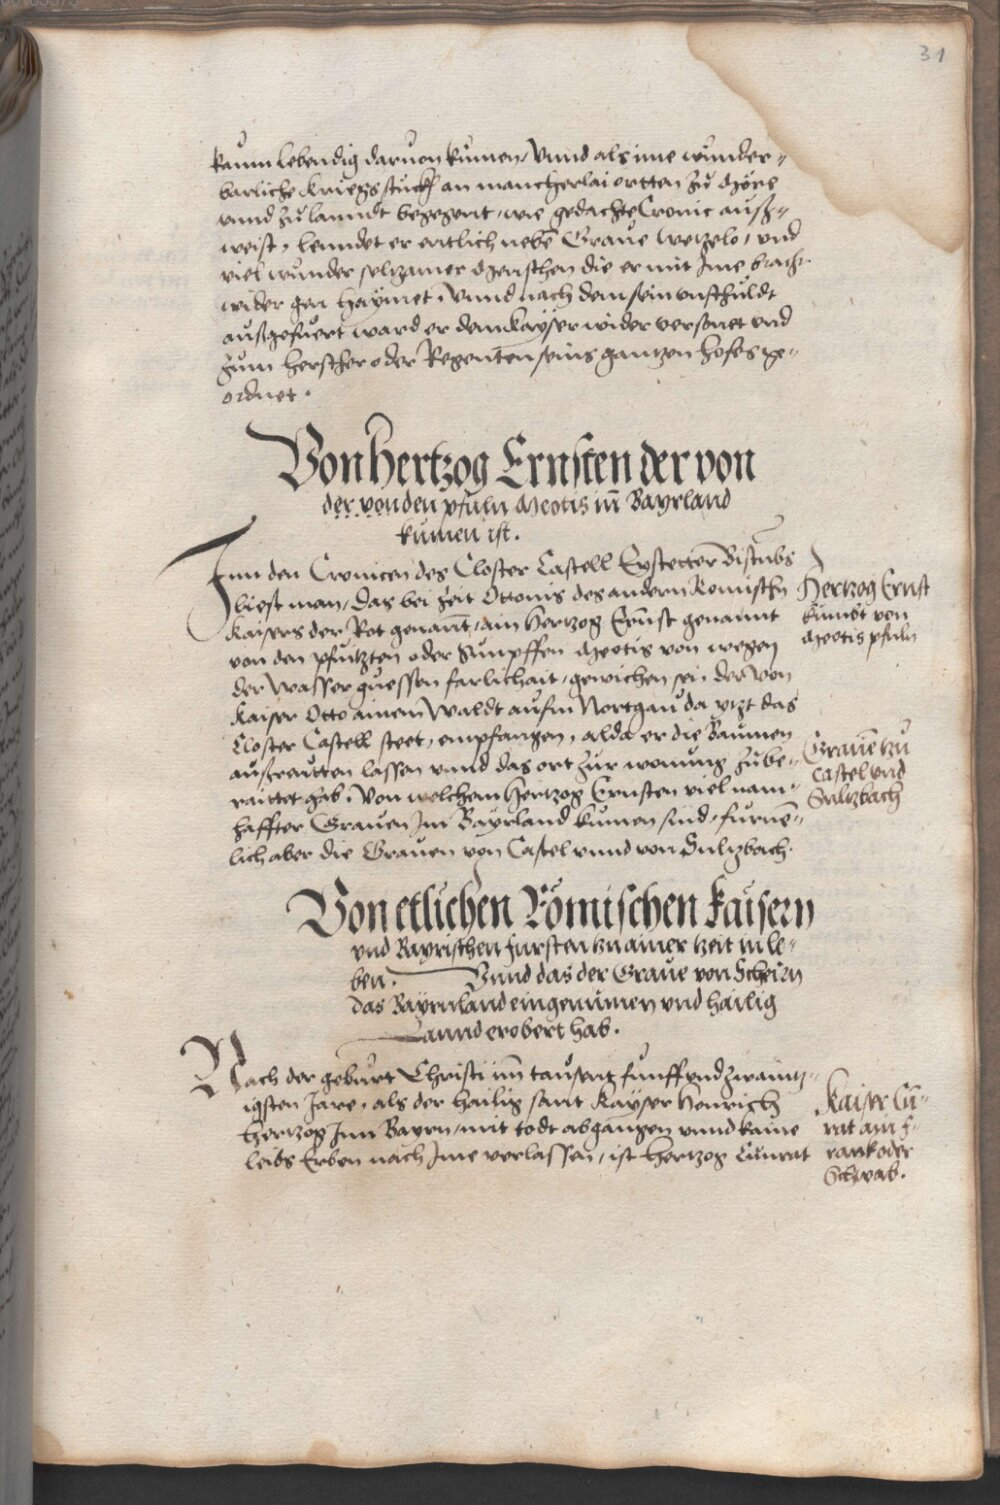 31
kaum lebendig daruon kumen, Vnnd als ime wunder-
barliche kriegs stuckh an mancherlai ortten zu Möre
vnnd zu lanndt begegent, wie gedachte Cronic auß-
weist, lenndet er entlich neben Graue Wetzelo, vnd
viel wunder seltzamer Menschen die er mit Ime bracht
wider gen Haÿmet. Vnnd nach dem sein vnschuldt
außgefuert ward er dem kaÿser wider versönet vnd
zum herscher oder Regenten seins gantzen hofes ge-
ordnet.
Von hertzog Ernsten der von
der von den pfuln Meotis in̄ Bayrland
kumen ist.
Inn den Cronicen des Closter Castell Eystetter Bistubs
liest man, das bei Zeit Ottonis des andern Romischn
kaisers der Rot genant, ain hertzog Ernst genannt
von den pfützten oder Sumpffen Meotis von wegen
der Wasser guessen farlichait, gewichen sei, der von
kaiser Otto ainem Waldt aufm Nortgau da ytzt das
Closter Castell steet, empfangen, alda er die Baumen
außreutten lassen vnnd das ort zur wonung zube-
raittet hab. Von welchem hertzog Ernsten viel nam-
haffter Grauen Im Baÿrland kumen sind, furnem-
lich aber die Grauen von Castel vnnd von Sulzbach.
Hertzog Ernst
kumbt von
Meotis pfuln
Grauen zu
Castel vnd
Sultzbach
Von etlichen Römischen kaisern
vnd Bayrischen fursten zu ainer zeit im le-
ben. Vnnd das der Graue von Scheirn
das Baÿrnland eingenumen vnd hailig
Lannd erobert hab.
Nach der geburt Christi im tausent funff vnd zwaintz-
igsten Jare, als der hailig sant kaÿser Henrich
Hertzog Inn Bayrn, mit todt abgangen vnnd kaine
leibs Erben nach Ime verlassen, ist hertzog Cunrat
kaiser Cun-
rat ain f-
rank oder
Schwab.